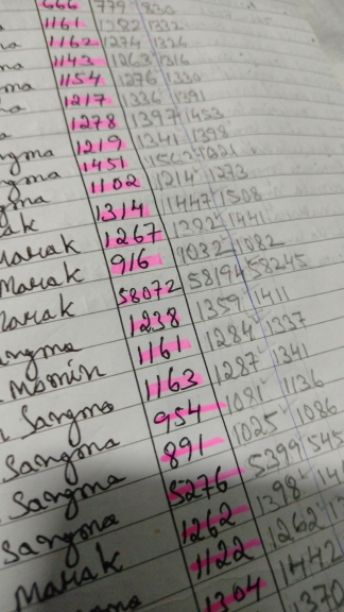 666 779 830
1161 1282 1332
1162 1274 1326
1143 1263 1316
1154 1276 1330
1217 1336 1391
1278 1397 1453
1219 1341 1398
1451
1102 1214 1273
1314 1447 1508
Marak 1267 1392 1441
Marak 916 1032 1082
Marak 58072 58194 58245
1238 1359 1411
1161 1284 1337
Momin 1163 1287 1341
Sangma 954 1081 1136
Sangma 891 1025 1086
Sangma 5276 5399 545
Sangma 1262 1398
Marak 1122 1262
1304 1442
370